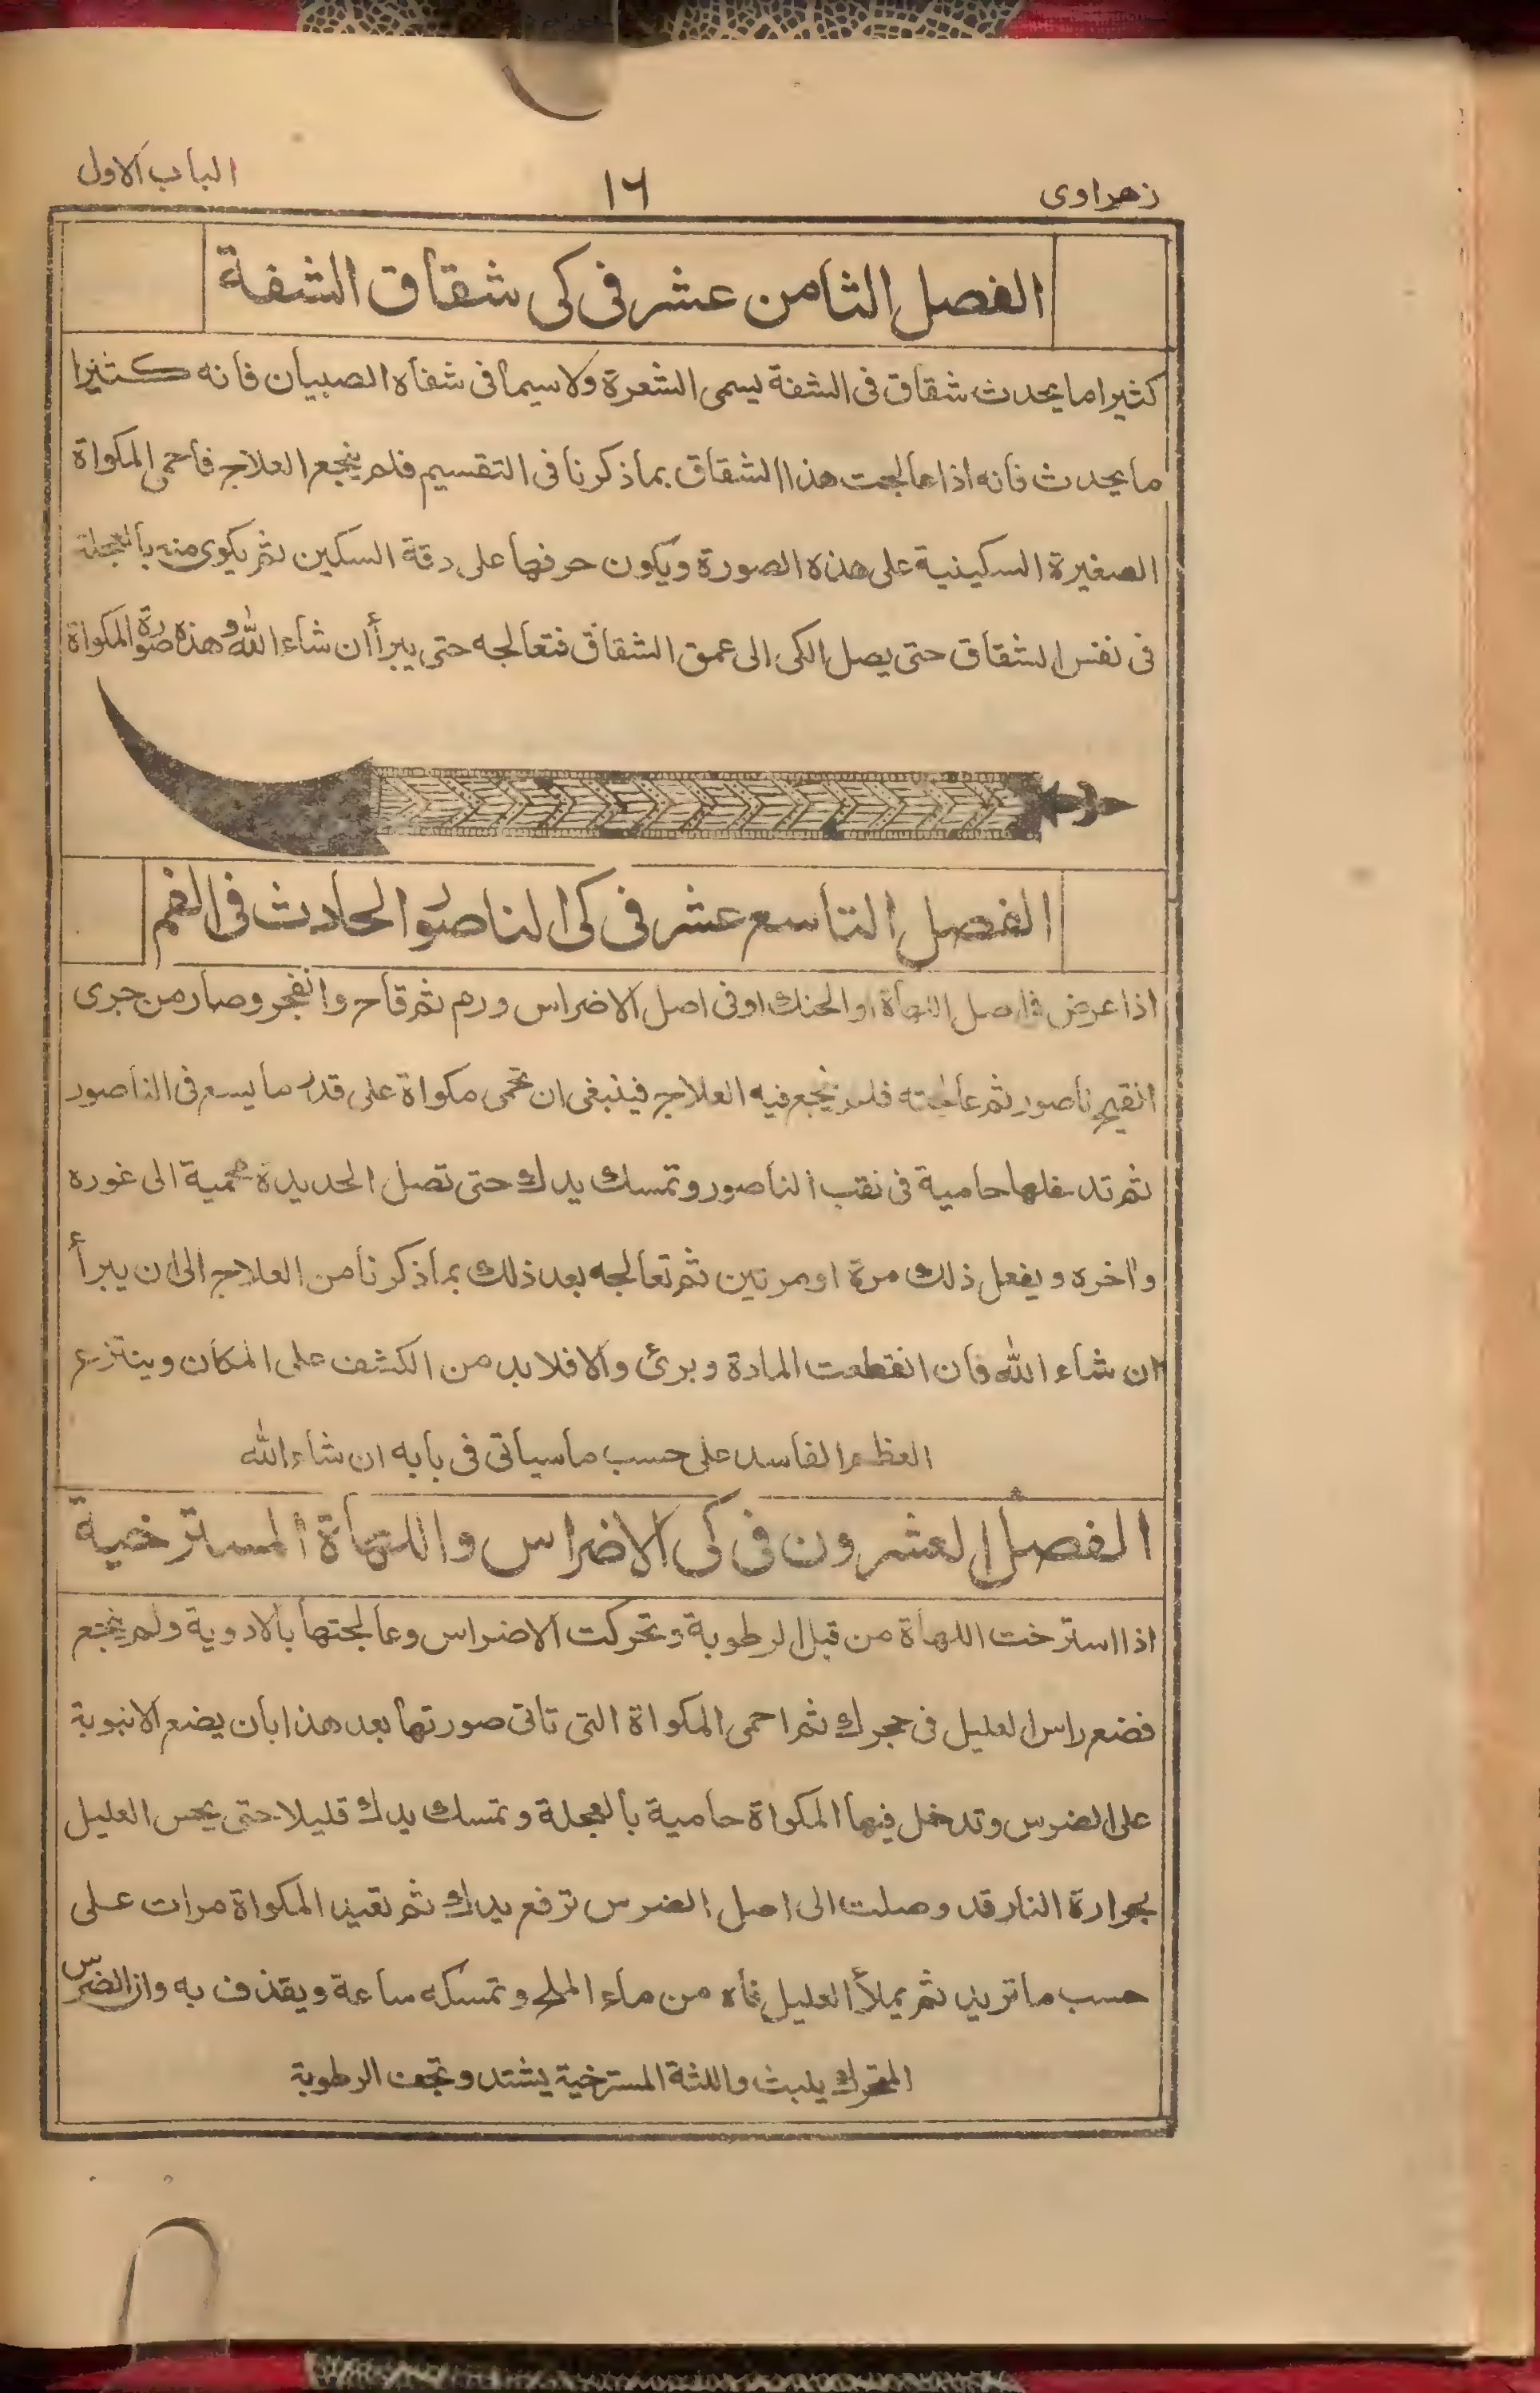 زهراوى
١٦
الباب الاول
الفصل الثامن عشر فى كى شقاق الشفة
كثيرا ما يحدث شقاق فى الشفة يسمى الشعرة ولا سيما فى شفاه الصبيان فانه كثيرا
ما يحدث فانه اذا عالجت هذا الشقاق بما ذكرنا فى التقسيم فلم ينجع العلاج فأحمى المكواة
الصغيرة السكينية على هذه الصورة ويكون حرفها على دقة السكين ثم يكوى منه بالعجلة
فى نفس الشقاق حتى يصل الكى الى عمق الشقاق فتعالجه حتى يبرأ ان شاء الله وهذه صورة المكواة
الفصل التاسع عشر فى كى الناصور الحادث فى الفم
اذا عرض فى اصل اللهاة او الحنك او فى اصل الاضراس ورم ثم قاح وانفجر وصار من جرى
القيح ناصور ثم عالجته فلم ينجع فيه العلاج فينبغى ان تحمى مكواة على قدر ما يسع فى الناصور
ثم تدخلها حامية فى نقب الناصور وتمسك يدك حتى تصل الحديدة محمية الى غوره
واخره ويفعل ذلك مرة او مرتين ثم تعالجه بعد ذلك بما ذكرنا من العلاج الى ان يبرأ
ان شاء الله فان انقطعت المادة وبرئ والا فلا بد من الكشف على المكان وينتزع
العظم الفاسد على حسب ما سياتى فى بابه ان شاء الله
الفصل العشرون فى كى الاضراس واللهاة المسترخية
اذا استرخت اللهاة من قبل الرطوبة وتحركت الاضراس وعالجتها بالادوية ولم ينجع
فضع راس العليل فى حجرك ثم احمى المكواة التى تاتى صورتها بعد هذا بان يضع الانبوبة
على الضرس وتدخل فيها المكواة حامية بالعجلة وتمسك يدك قليلا حتى يحس العليل
بحرارة النار قد وصلت الى اصل الضرس ترفع يدك ثم تعيد المكواة مرات على
حسب ما تريد ثم يملأ العليل فاه من ماء الملح وتمسكه ساعة ويقذف به وان الضرس
المتحرك يلبث واللثة المسترخية يشتد وتجف الرطوبة